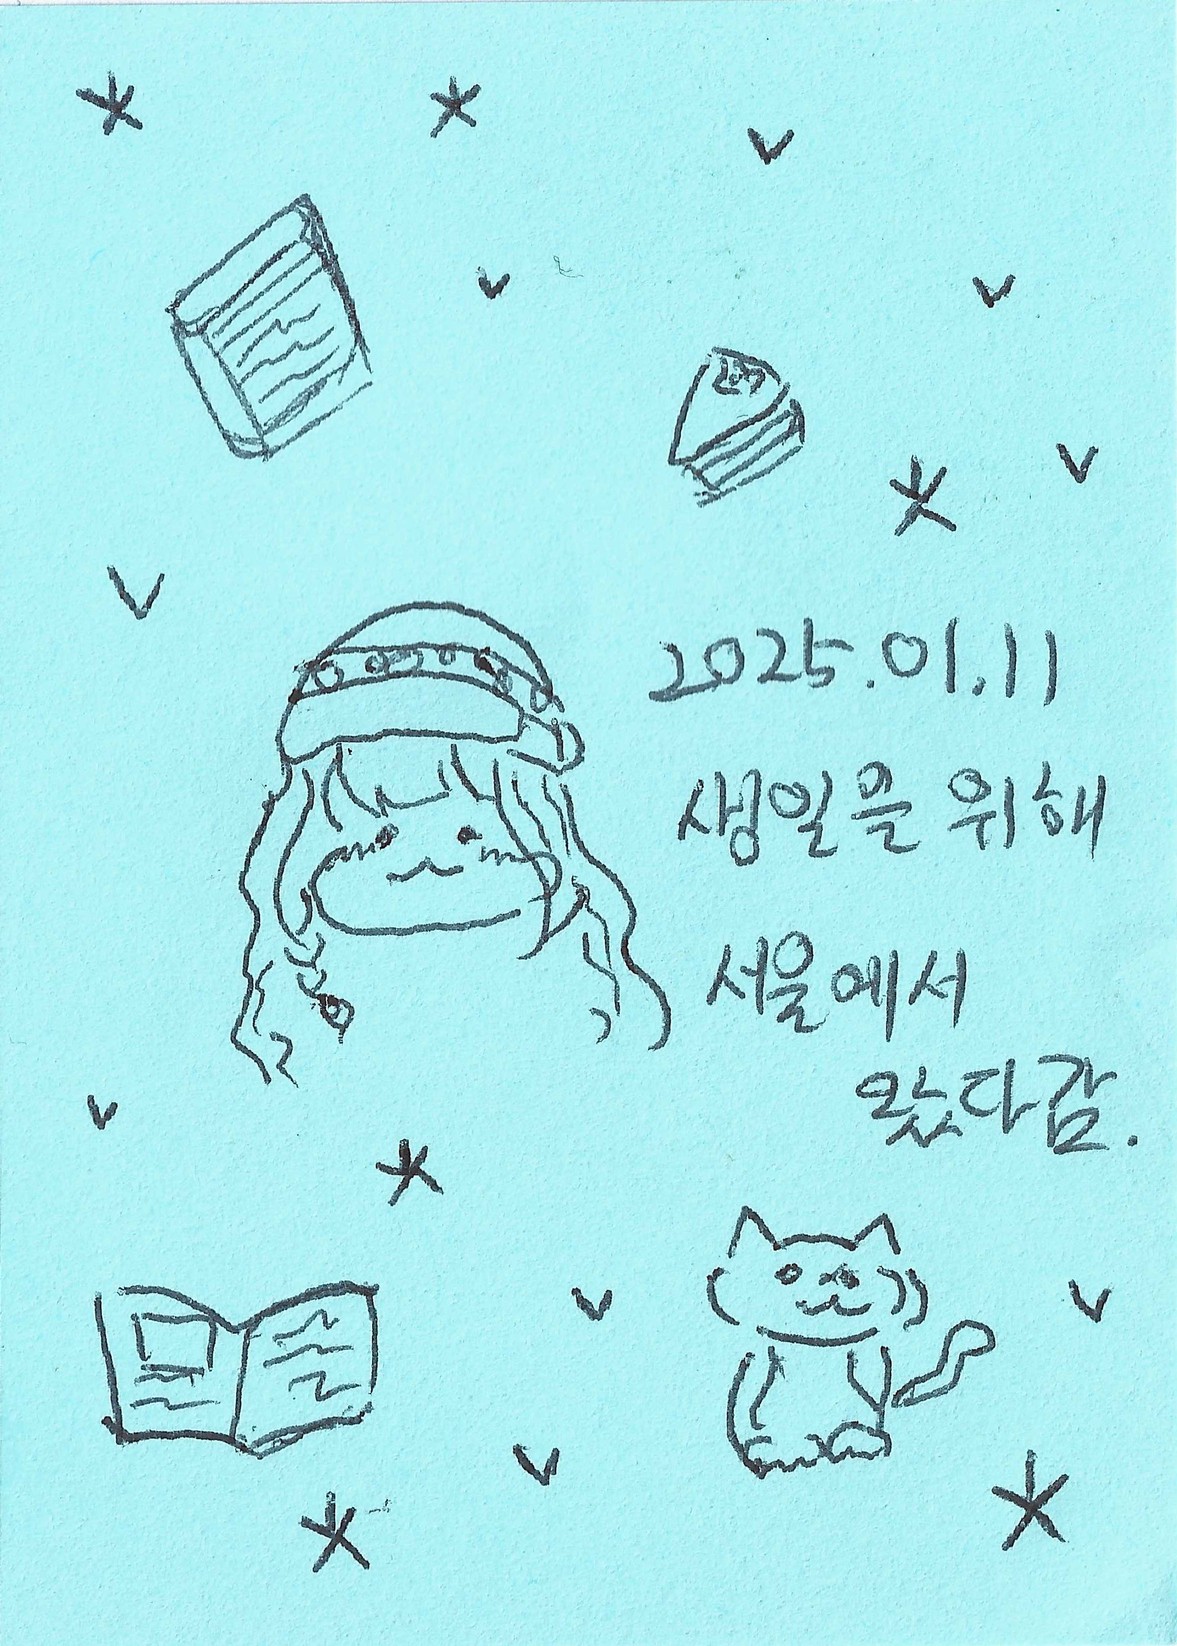 2025.01.11
생일을 위해
서울에서
왔다감.